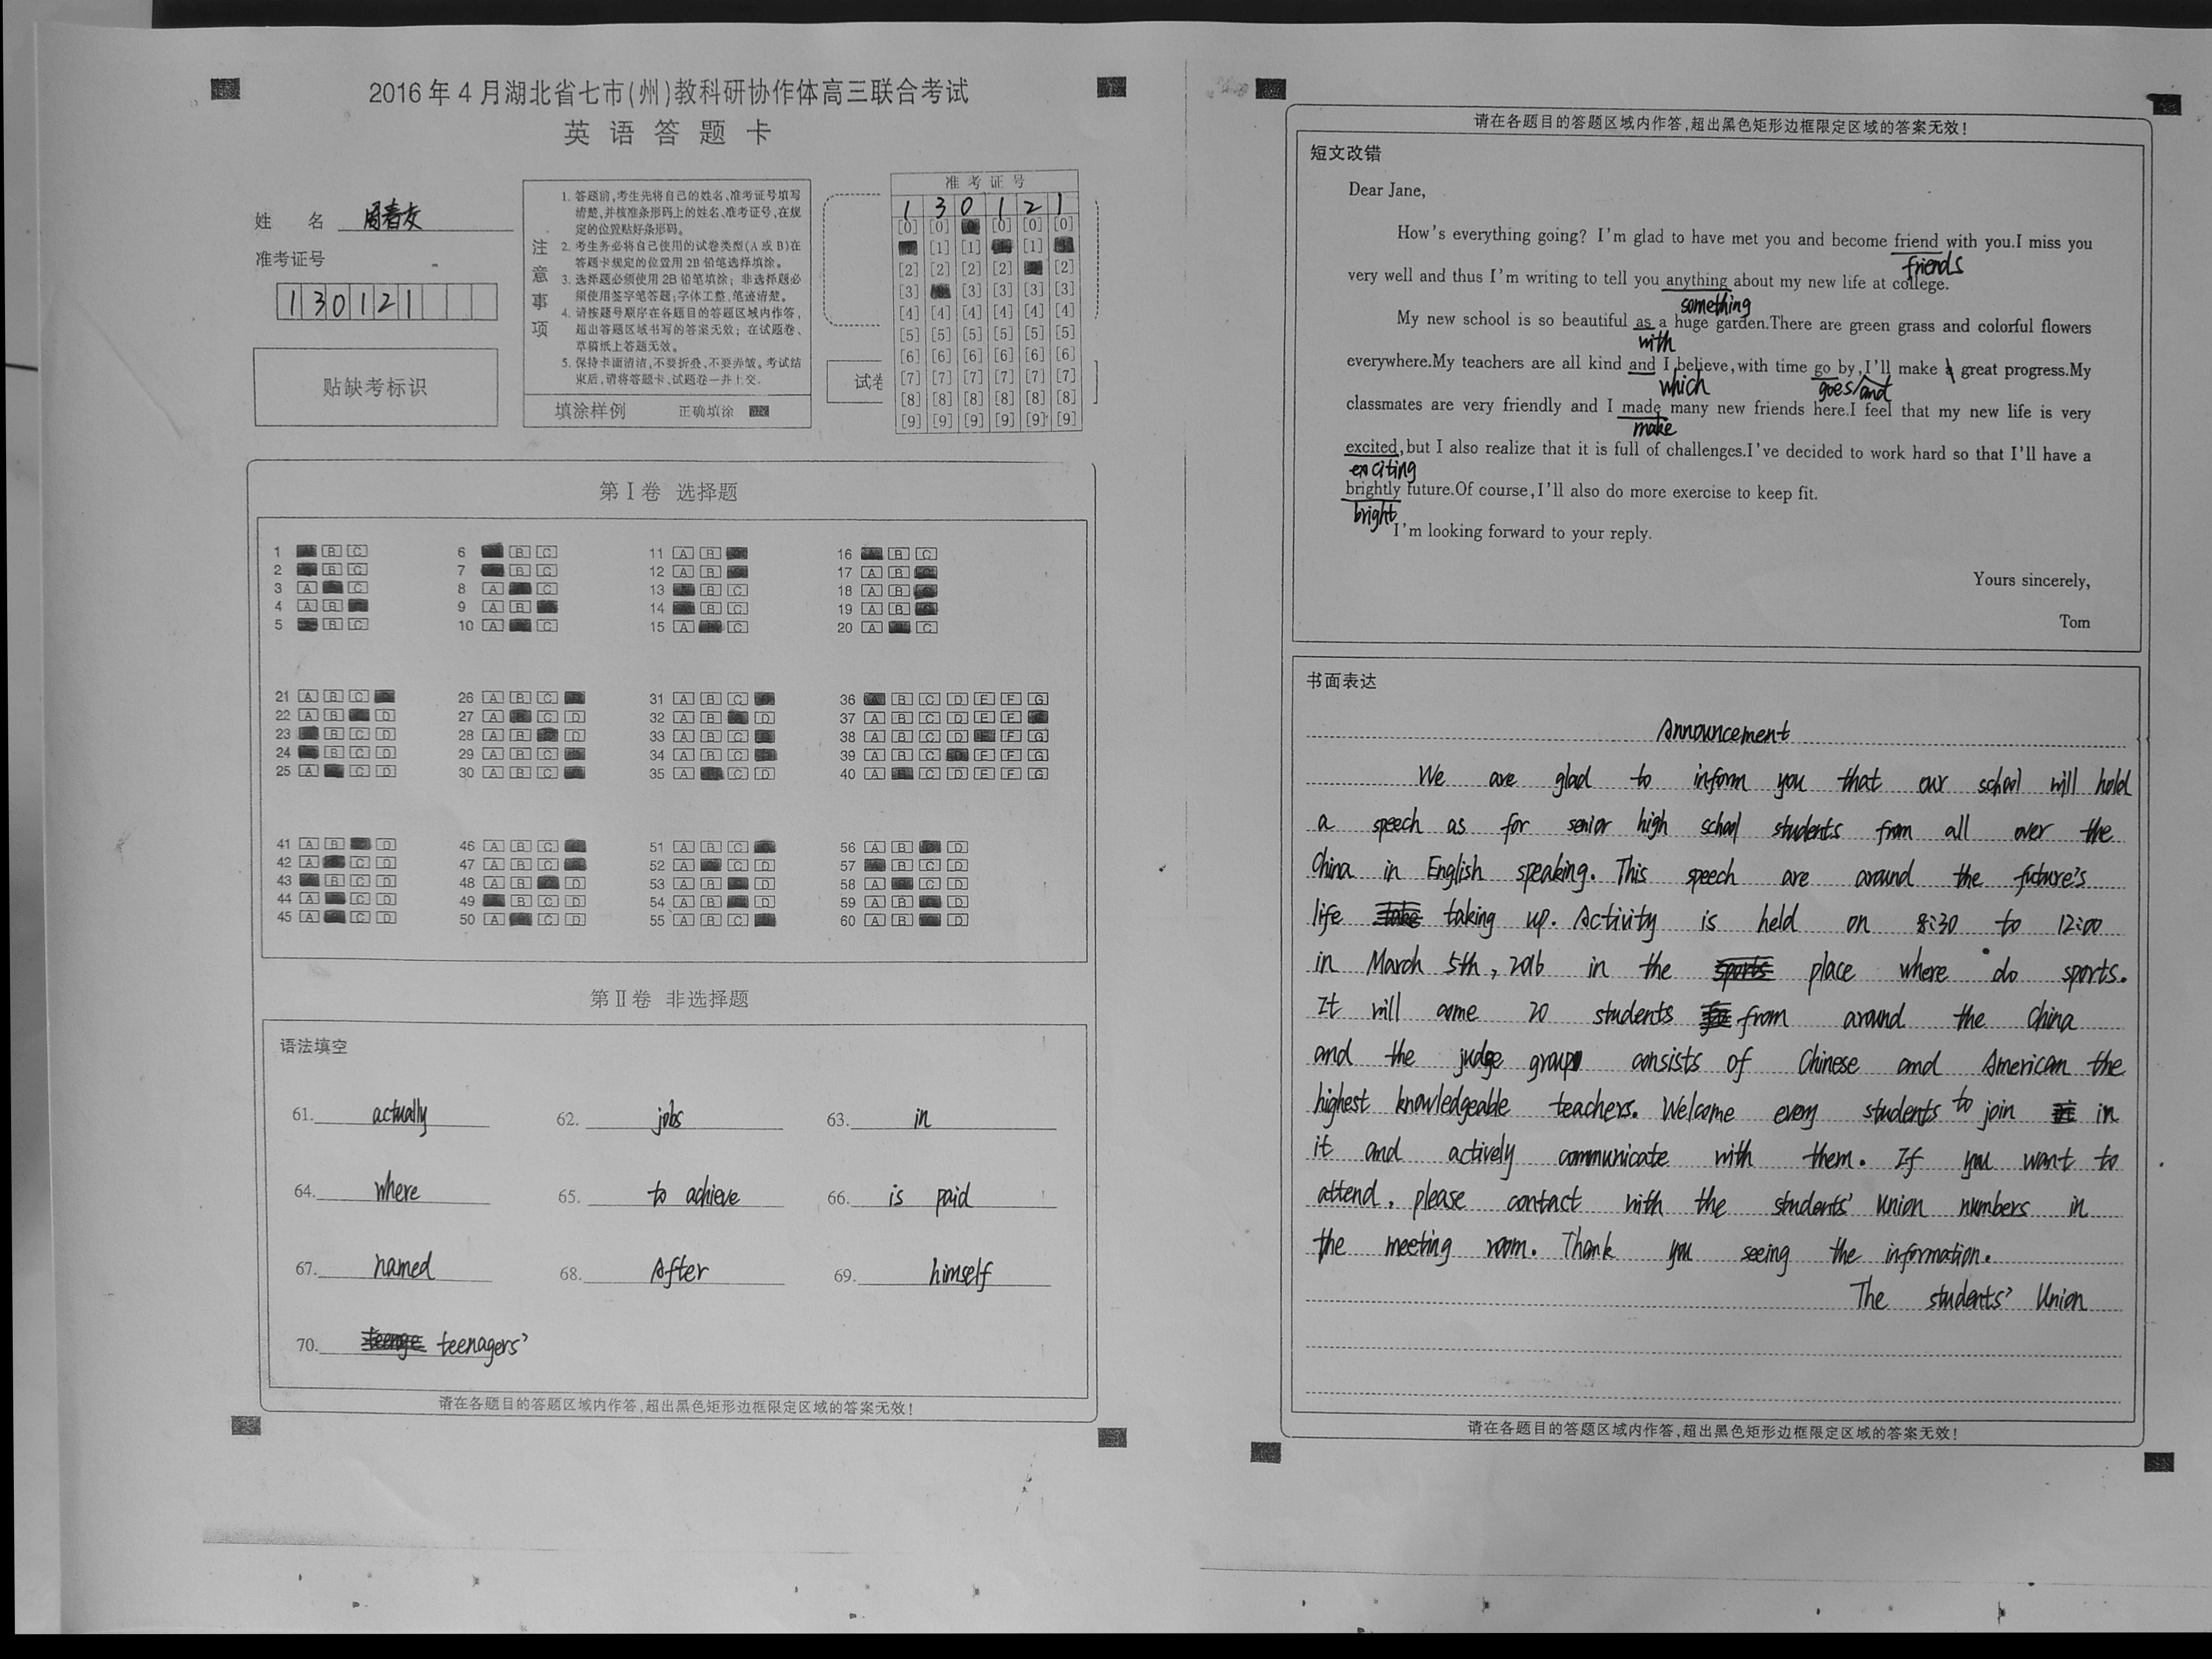 2016年4月湖北省七市(州)教科研协作体高三联合考试
英语答题卡
姓 名 周春友
准考证号
130121
贴缺考标识
注意事项
1. 答题前,考生先将自己的姓名、准考证号填写
清楚,并核准条形码上的姓名、准考证号,在规
定的位置贴好条形码。
2. 考生务必将自己使用的试卷类型(A或B)在
答题卡规定的位置用2B铅笔选择填涂。
3. 选择题必须使用2B铅笔填涂; 非选择题必
须使用签字笔答题;字体工整,笔迹清楚。
4. 请按题号顺序在各题目的答题区域内作答,
超出答题区域书写的答案无效; 在试题卷、
草稿纸上答题无效。
5. 保持卡面清洁,不要折叠,不要弄皱。考试结
束后,请将答题卡、试题卷一并上交.
填涂样例 正确填涂
试卷
准考证号
1 3 0 1 2 1
[0] [0] [0] [0] [0]
[1] [1] [1]
[2] [2] [2] [2] [2]
[3] [3] [3] [3] [3]
[4] [4] [4] [4] [4] [4]
[5] [5] [5] [5] [5] [5]
[6] [6] [6] [6] [6] [6]
[7] [7] [7] [7] [7] [7]
[8] [8] [8] [8] [8] [8]
[9] [9] [9] [9] [9] [9]
第Ⅰ卷 选择题
1 B C 6 B C 11 A B 16 B C
2 B C 7 B C 12 A B 17 A B
3 A C 8 A C 13 B C 18 A B
4 A B 9 A B 14 B C 19 A B
5 B C 10 A C 15 A C 20 A C
21 A B C 26 A B C 31 A B C 36 B C D E F G
22 A B D 27 A C D 32 A B D 37 A B C D E F
23 B C D 28 A B D 33 A B C 38 A B C D F G
24 B C D 29 A B C 34 A B C 39 A B C E F G
25 A C D 30 A B C 35 A C D 40 A C D E F G
41 A B D 46 A B C 51 A B C 56 A B D
42 A C D 47 A B C 52 A C D 57 B C D
43 B C D 48 A B D 53 A B D 58 A C D
44 A C D 49 B C D 54 A B D 59 A B D
45 A C D 50 A C D 55 A B C 60 A B D
第Ⅱ卷 非选择题
语法填空
61. actually 62. jobs 63. in
64. where 65. to achieve 66. is paid
67. named 68. After 69. himself
70. teenagers'
请在各题目的答题区域内作答,超出黑色矩形边框限定区域的答案无效!
请在各题目的答题区域内作答,超出黑色矩形边框限定区域的答案无效!
短文改错
Dear Jane,
How's everything going? I'm glad to have met you and become friend with you.I miss you
friends
very well and thus I'm writing to tell you anything about my new life at college.
something
My new school is so beautiful as a huge garden.There are green grass and colorful flowers
with
everywhere.My teachers are all kind and I believe,with time go by,I'll make a great progress.My
which goes and
classmates are very friendly and I made many new friends here.I feel that my new life is very
make
excited,but I also realize that it is full of challenges.I've decided to work hard so that I'll have a
exciting
brightly future.Of course,I'll also do more exercise to keep fit.
bright
I'm looking forward to your reply.
Yours sincerely,
Tom
书面表达
Announcement
We are glad to inform you that our school will hold
a speech as for senior high school students from all over the
China in English speaking. This speech are around the future's
life taking up. Activity is held on 8:30 to 12:00
in March 5th, 2016 in the place where do sports.
It will come 20 students from around the China
and the judge group consists of Chinese and American the
highest knowledgeable teachers. Welcome every students to join in
it and actively communicate with them. If you want to
attend, please contact with the students' Union numbers in
the meeting room. Thank you seeing the information.
The students' Union
请在各题目的答题区域内作答,超出黑色矩形边框限定区域的答案无效!